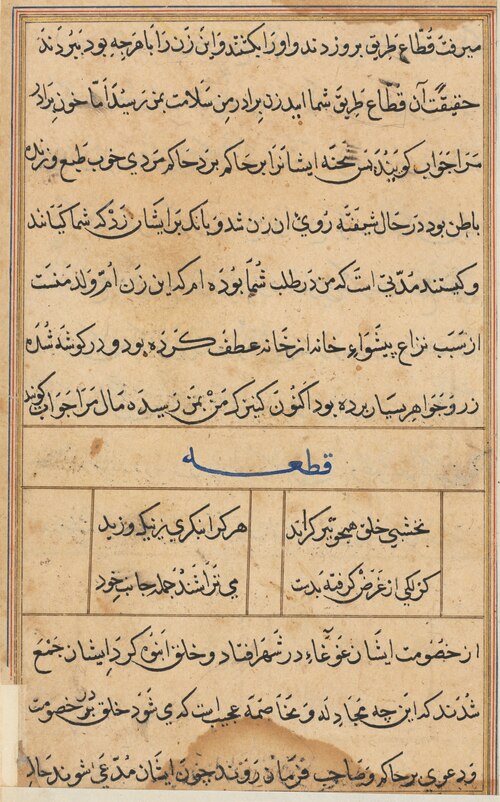 میرفت قُطّاع طریق بروزدند و او را بکشتند و این زن را با هرچه بود ببردند
حقیقت آن قطاع طریق شما ایید زن برادر من سلامت بمن رسید اما خون برادر
مرا جواب کویید پس شحنه ایشانرا بر حاکم برد حاکم مردی خوب طبع و زنده
باطن بود در حال شیفته روی ان زن شد و بانک بر ایشان زد که شما کیانند
و کیستند مدتی است که من در طلب شما بوده ام که این زن ام ولد منست
از سبب نزاع پیشواء خانه از خانه عطف کرده بود و در کوشه شده
زر و جواهر بسیار برده بود اکنون کنیزک من بمن رسیده مال مرا جواب کویید
قطعه
نخشبی خلق همچو تیر کراند
هر کرا بنکری بر نیک و زید
کزلکی از غرض کرفته بدت
می تراشد جمله جانب خود
از خصومت ایشان غوغاء در شهر افتاد و خلق انبوه کرد ایشان جمع
شدند که این چه مجادله و مخاصمه عجیب است که می شود خلق بر خصومت
و دعوی بر حاکم و صاحب فرمان روند چون ایشان مدعی شوند حاد